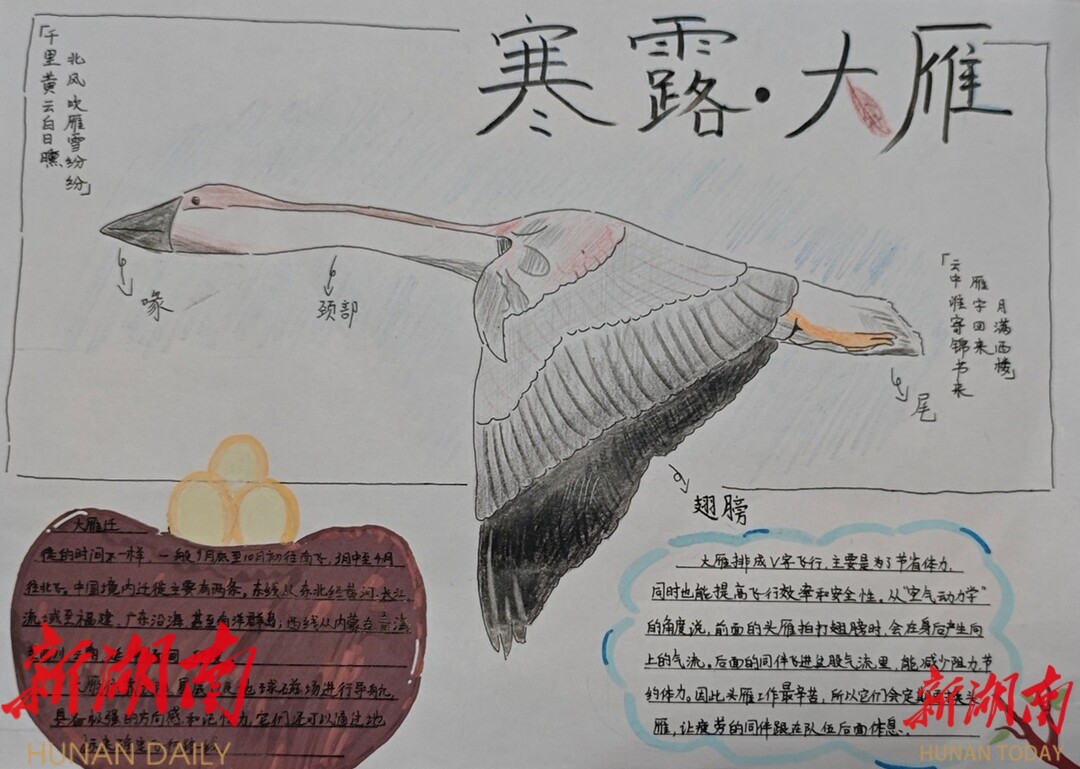 寒露·大雁
「千里黄云白日曛
北风吹雁雪纷纷」
喙
颈部
「云中谁寄锦书来
雁字回来
月满西楼」
尾
翅膀
大雁迁
徙的时间不一样，一般9月底至10月初往南飞，3月中至4月
往北飞。中国境内迁徙主要有两条，东线从东北经黄河、长江
流域至福建、广东沿海甚至南洋群岛，西线从内蒙古、青海
大雁
地球磁场进行导航，
具有极强的方向感和记忆力，它们还可以通过地
大雁排成V字飞行，主要是为了节省体力，
同时也能提高飞行效率和安全性。从“空气动力学”
的角度说，前面的头雁拍打翅膀时，会在身后产生向
上的气流。后面的同伴飞进这股气流里，能减少阻力节
约体力。因此头雁工作最辛苦，所以它们会定期
头
雁，让疲劳的同伴跟在队伍后面休息。
新湖南
HUNAN DAILY
新湖南
HUNAN TODAY